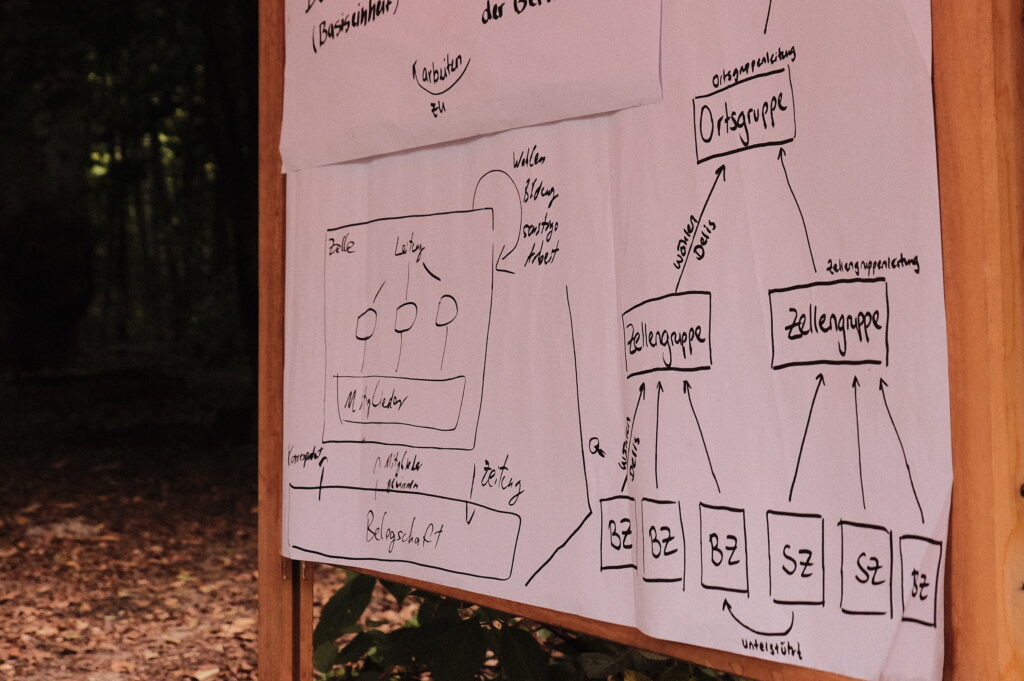 (Basiseinheit)
arbeiten
zu
Wählen
Bildung
sonstige
Arbeit
Zelle
Leitung
Mitglieder
Mitglieder
Zeitung
Belegschaft
Ortsgruppenleitung
Ortsgruppe
Wählen
Delis
Zellengruppenleitung
Zellengruppe
Zellengruppe
Wählen
Delis
BZ
BZ
BZ
SZ
SZ
BZ
unterstützt